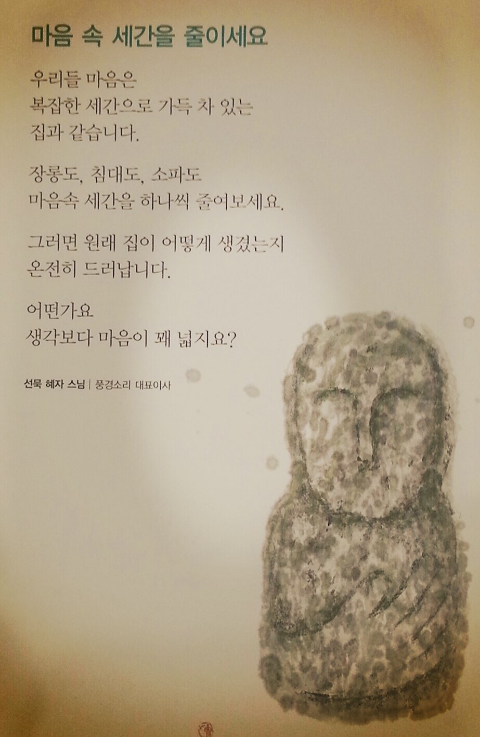 마음 속 세간을 줄이세요
우리들 마음은
복잡한 세간으로 가득 차 있는
집과 같습니다.
장롱도, 침대도, 소파도
마음속 세간을 하나씩 줄여보세요.
그러면 원래 집이 어떻게 생겼는지
온전히 드러납니다.
어떤가요
생각보다 마음이 꽤 넓지요?
선묵 혜자 스님 | 풍경소리 대표이사